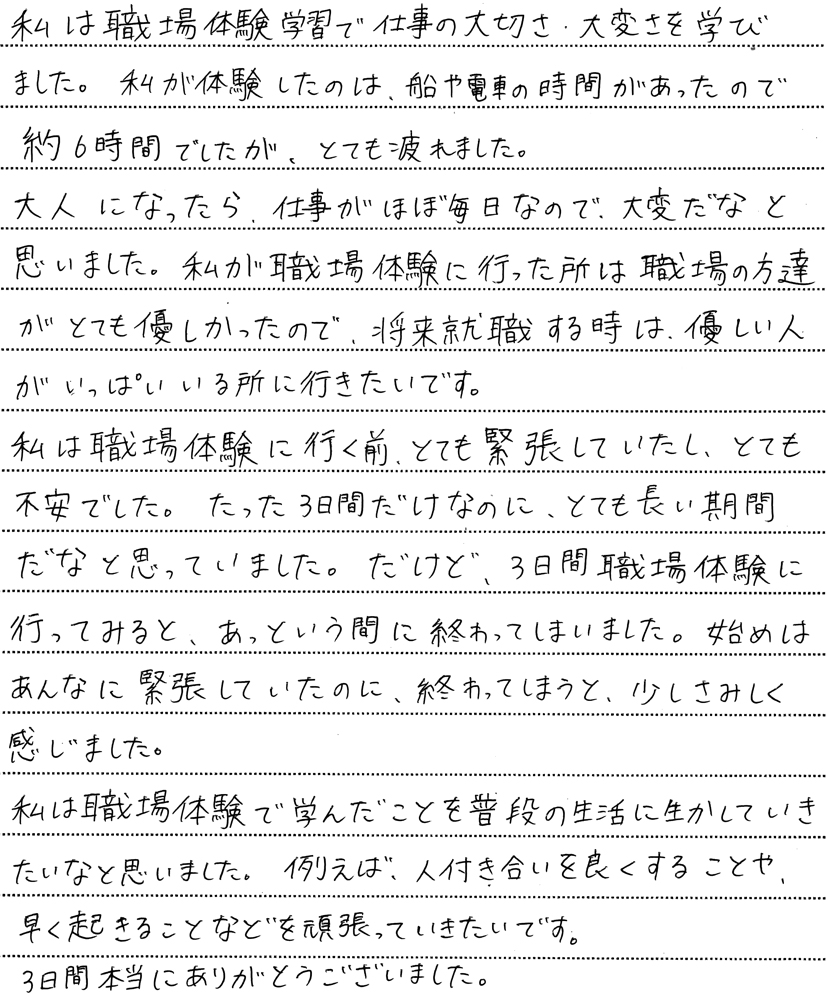 私は職場体験学習で仕事の大切さ・大変さを学び
ました。私が体験したのは、船や電車の時間があったので
約6時間でしたが、とても疲れました。
大人になったら、仕事がほぼ毎日なので、大変だなと
思いました。私が職場体験に行った所は職場の方達
がとても優しかったので、将来就職する時は、優しい人
がいっぱいいる所に行きたいです。
私は職場体験に行く前、とても緊張していたし、とても
不安でした。たった3日間だけなのに、とても長い期間
だなと思っていました。だけど、3日間職場体験に
行ってみると、あっという間に終わってしまいました。始めは
あんなに緊張していたのに、終わってしまうと、少しさみしく
感じました。
私は職場体験で学んだことを普段の生活に生かしていき
たいなと思いました。例えば、人付き合いを良くすることや、
早く起きることなどを頑張っていきたいです。
3日間本当にありがとうございました。